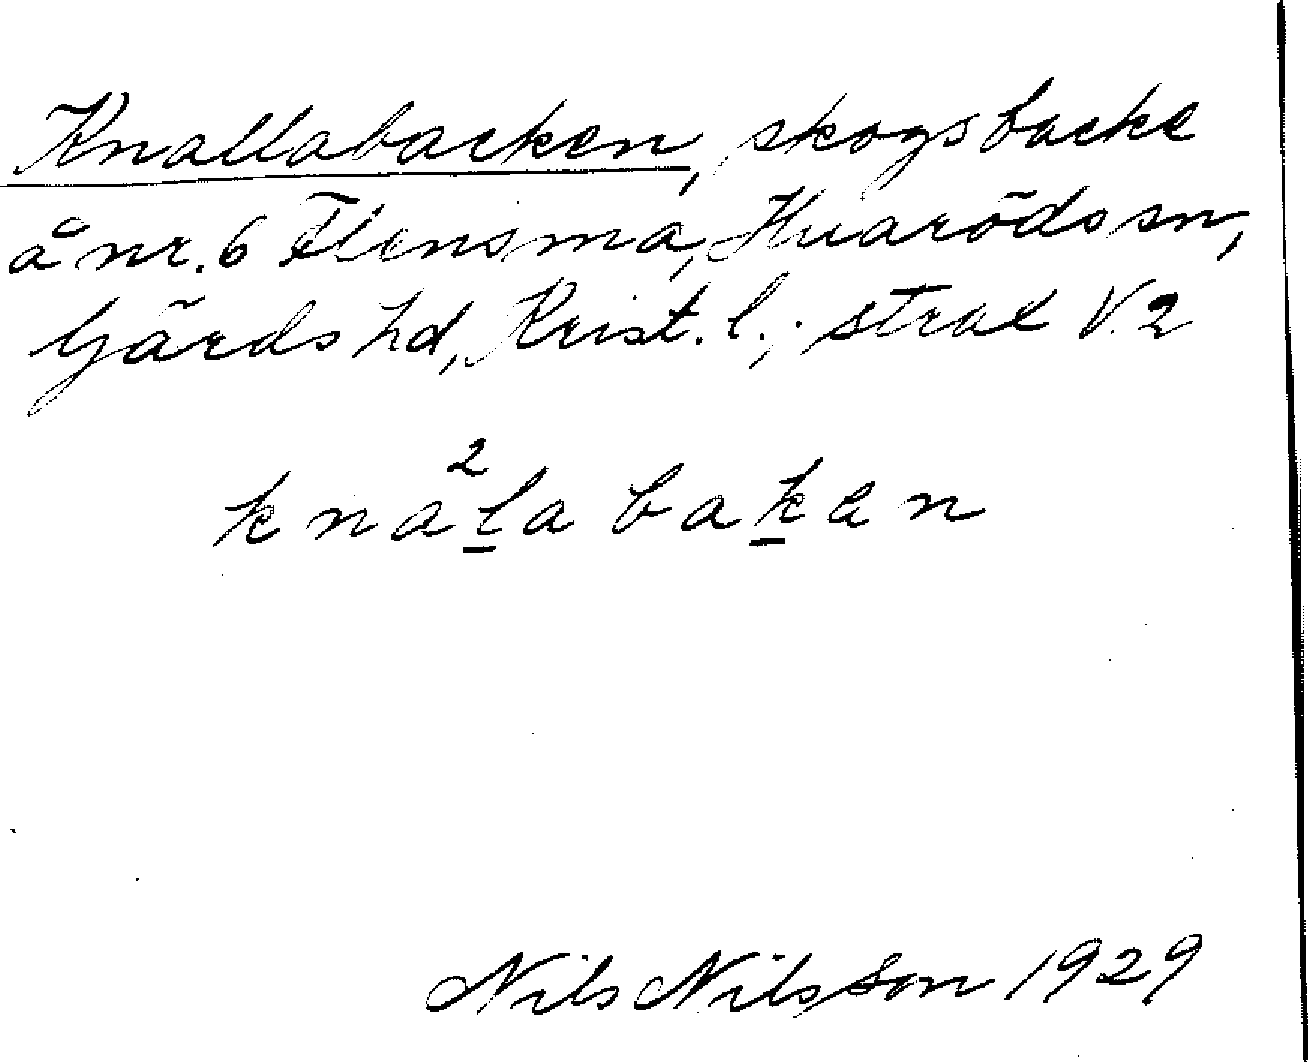 Knallabacken, skogsbacke
å nr. 6 Flensma, Huaröds sn,
Gärds hd, Krist. l.; strax V. 2
kna²la baken
Nils Nilsson 1929